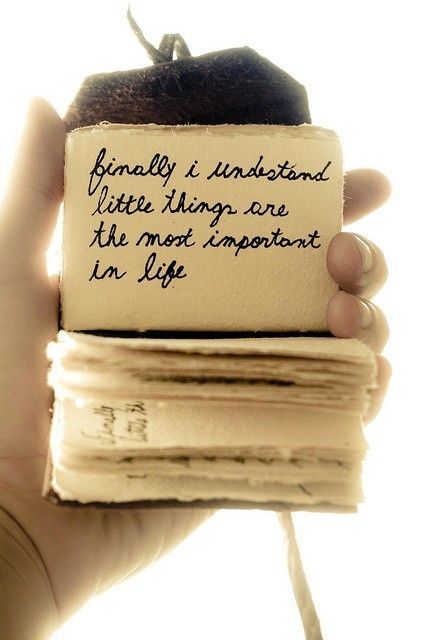 finally i undestand
little things are
the most important
in life
Finally
little th